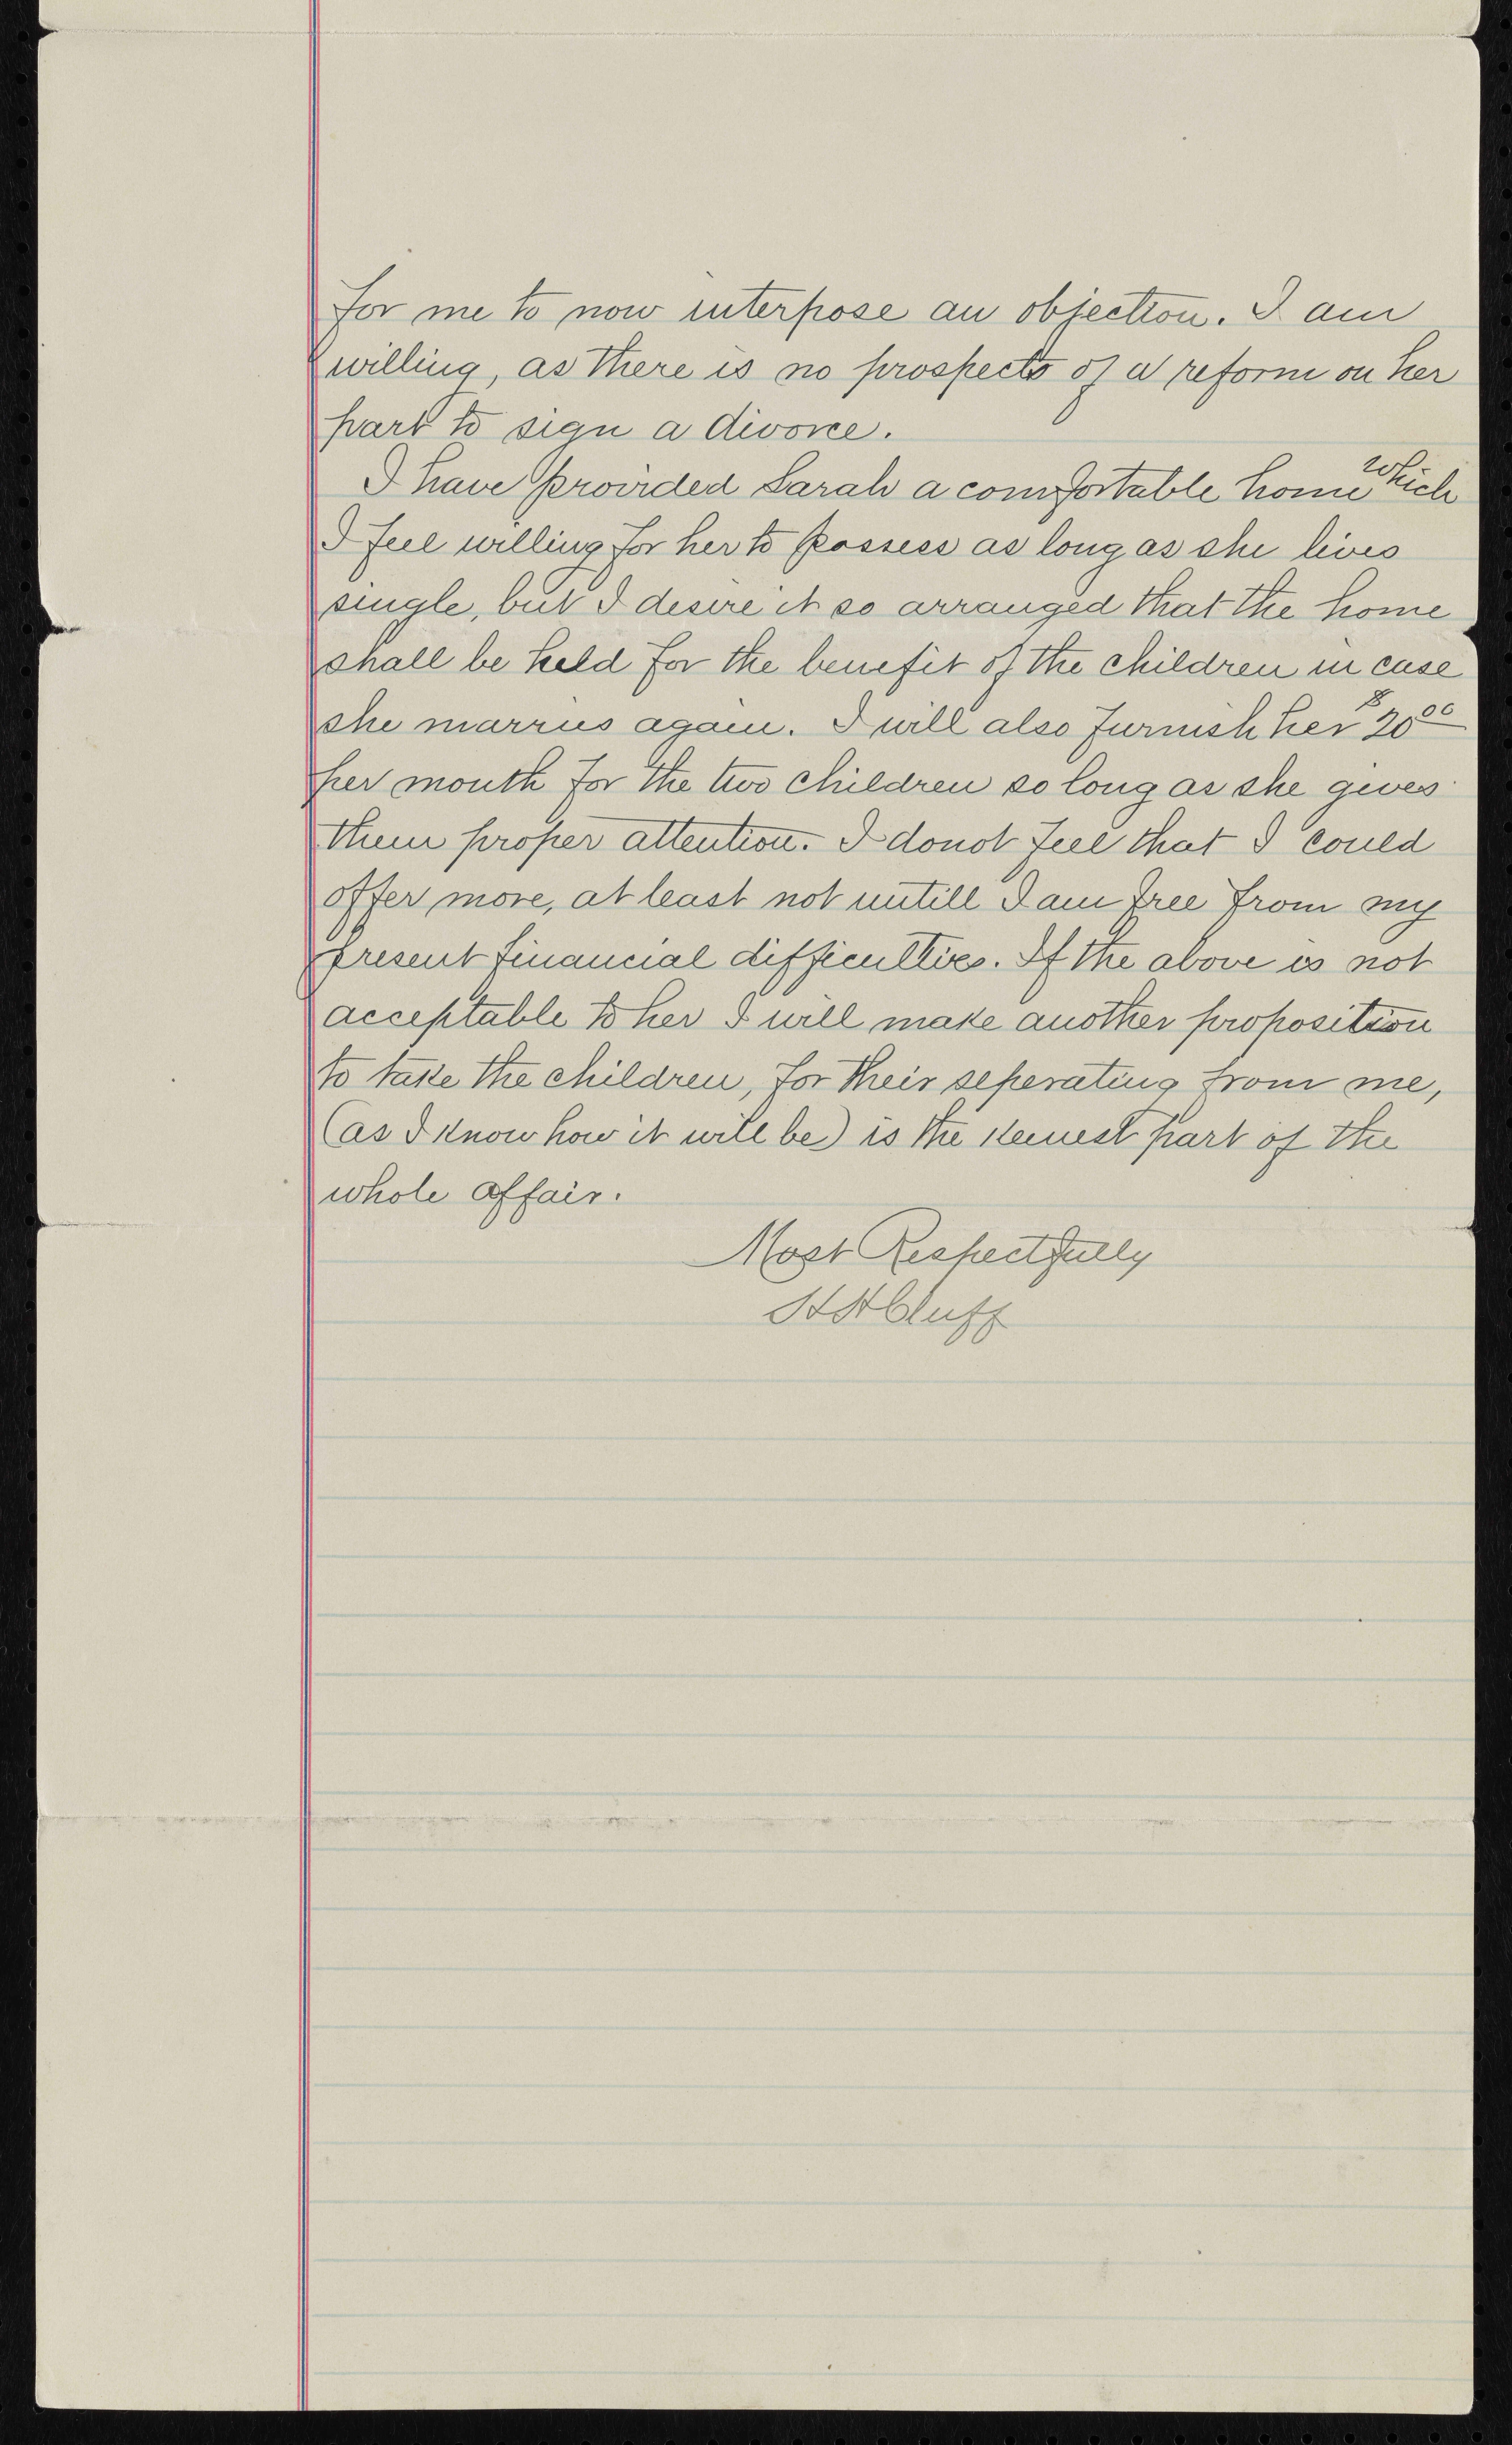 for me to now interpose an objection. I am
willing, as there is no prospects of a reform on her
part to sign a divorce.
I have provided Sarah a comfortable home which
I feel willing for her to possess as long as she lives
single, but I desire it so arranged that the home
shall be held for the benefit of the children in case
she marries again. I will also furnish her $20 00
per month for the two children so long as she gives
them proper attention. I donot feel that I could
offer more, at least not untill I am free from my
present financial difficulties. If the above is not
acceptable to her I will make another proposition
to take the children, for their seperating from me,
(as I know how it will be) is the keenest part of the
whole affair.
Most Respectfully
H H Cluff